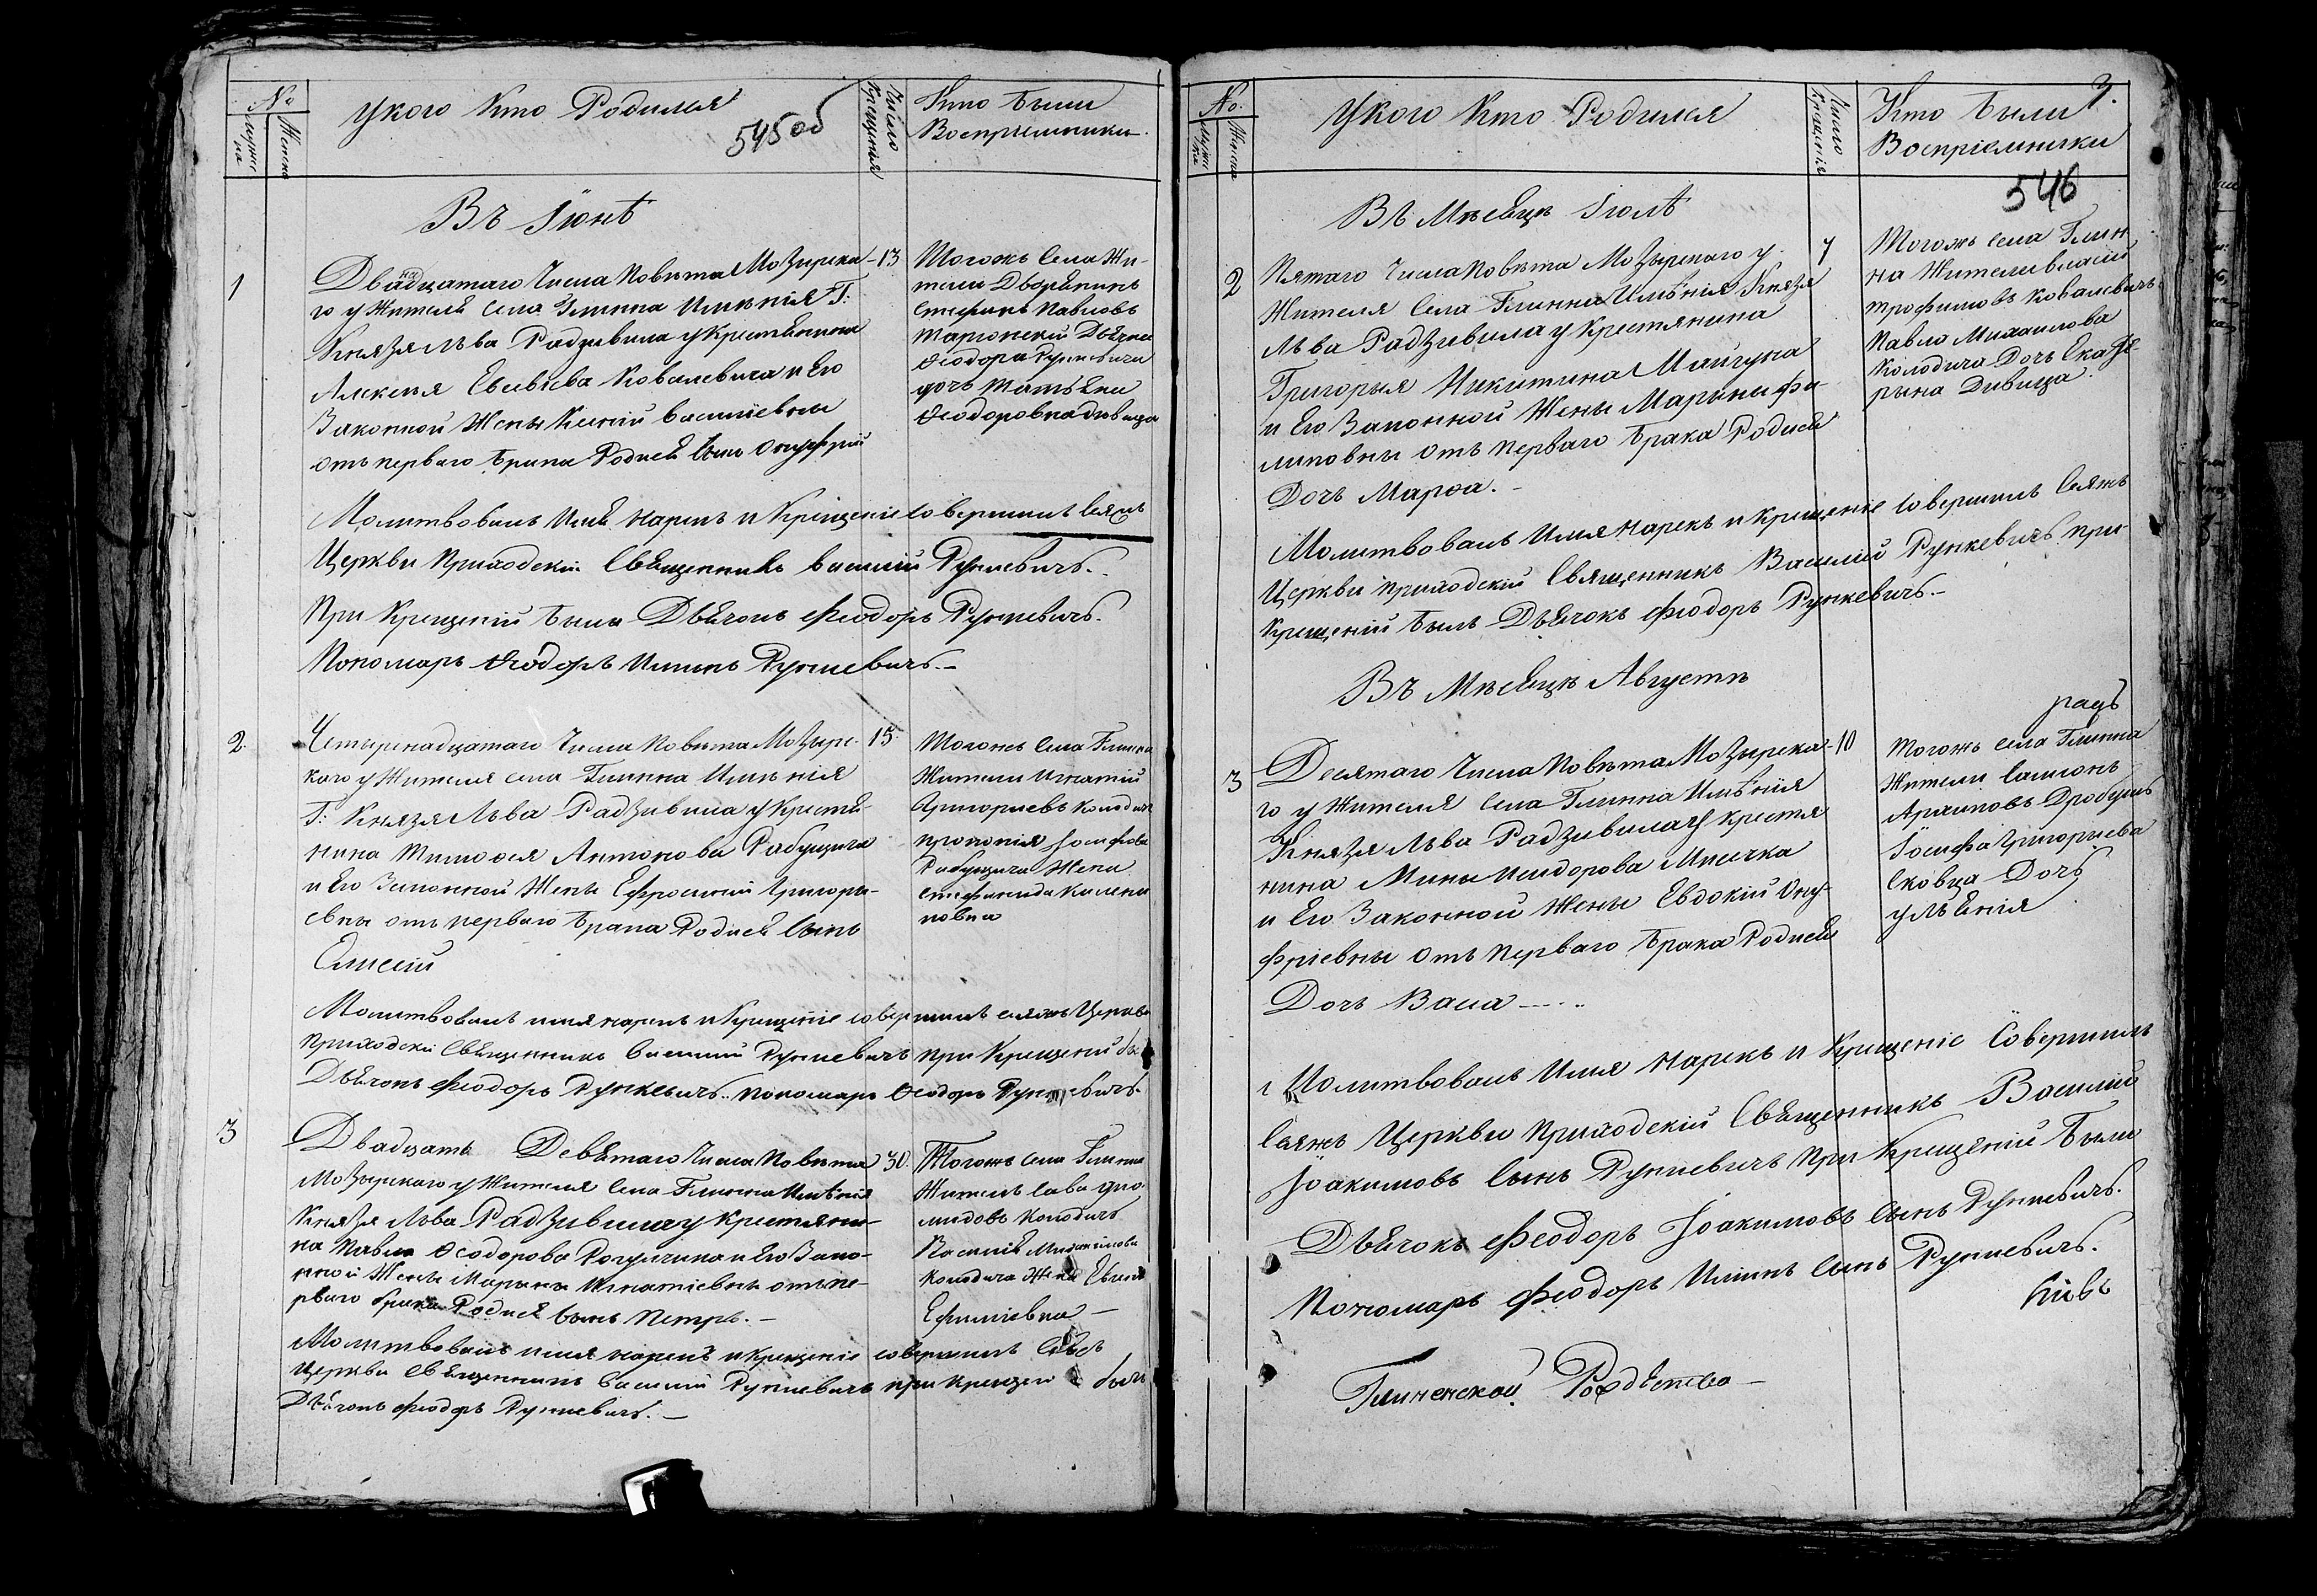 No
Мужеска
Женска
У кого Кто Родился
545 об
Число Крещения
Кто были
Восприемники
Въ Іюнѣ
1
Двѣнадцатаго Числа Повѣта Мозирска-
13
го у Жителя Села Глинна Имѣнія Г:
Князя Льва Радзивила у Крестьянина
Алексея Евсвіева Ковалевича и Его
Законной Жены Ксении Василіевны
Отъ перваго брака Родися Сынъ Онуфрій
Тогожъ Села Жи-
тели Дворянинъ
Стефанъ Павловъ
Дьячка
Ѳеодора Рункевича
дочь Татьяна
Ѳеодоровна дѣвица
Молитвовалъ Имя Нарекъ и Крещеніе Совершилъ Сеяжъ
Церкви Приходскій Священникъ Василій Рункевичъ.
При Крещеніи были Дьячокъ Феодоръ Рункевичъ.
Пономарь Ѳеодоръ Ильинъ Рункевичъ.
2.
Четыренадцатаго Числа Повѣта Мозырс-
15
каго у Жителя села Глинна Имѣнія
Г: Князя Льва Радзивила у Крестья-
нина Тимоѳея Антонова Рабушича
и Его Законной Жены Ефросиніи Григорь-
евны отъ перваго брака Родися Сынъ
Елисей
Тогожъ Села Глинна
Жители Игнатій
Григориевъ Колодичъ
Прокопія Іосифова
Рабушича Жена
Стефанида
повна
Молитвовалъ имя нарекъ и Крещеніе совершилъ сеяжъ Церкви
Приходскій Священникъ Василий Рункевичъ при Крещеніи бы
Дьячокъ Феодоръ Рункевичъ. пономарь Ѳеодоръ Рункевичъ.
3
Двадцать Девятаго Числа Повѣта
30.
Мозырскаго у Жителя Села Глинна Имѣнія
Князя Льва Радзивила у Крестьяни-
на Павла Ѳеодорова и Его Зако-
нной Жены Марыны Игнатіевны отъ пе-
рваго брака Родися Сынъ Петръ.
Тогожъ Села Глинна
Житель Сава
Колодичъ
Василія Михайлова
Колодича Жена
Ефиміевна
Молитвовалъ имя нарекъ и Крещеніе совершилъ
Церкви Священникъ Василий Рункевичъ при Крещеніи былъ
Дьячокъ Феодоръ Рункевичъ.
No.
Мужеска
Женска
У кого Кто Родился
Число Крещенія
Кто были
Воспріемники
3.
546
Въ Мѣсяцѣ Іюлѣ
2
Пятаго Числа Повѣта Мозырскаго у
7
Жителя Села Глинна Имѣнія Князя
Льва Радзивила у Крестянина
Григорья Никитина Майгуна
и Его Законной Жены Марыны Фи-
липовны Отъ перваго брака Родися
Дочь Марѳа.
Тогожъ села Глин-
на Жители Власій
Трофимовъ Ковалевичъ
Павла Михаилова
Колодича Дочь Екате-
рына Дивица.
Молитвовалъ Имя Нарекъ и Крещеніе Совершилъ Сеяжъ
Церкви приходскій Священникъ Василий Рункевичъ при
Крещеніи былъ Дьячокъ Феодоръ Рункевичъ.
Въ Мѣсяцѣ Августѣ
радъ
3
Десятаго Числа Повѣта Мозырска-
10
го у Жителя Села Глинна Имѣнія
Князя Льва Радзивила у Крестя
нина Мины Исидорова Мисечка
и Его Законной Жены Евдокіи Ону-
фріевны Отъ перваго брака Родися
Дочь Васа
Тогожъ села Глинна
Жители Самсонъ
Архиповъ Дробушъ
Іосифа Григориева
Сковца Дочь
Ульянія
Молитвовалъ Имя Нарекъ и Крещеніе Совершилъ
Сеяжъ Церкви Приходскій Священникъ Василий
Іоакимовъ Сынъ Рункевичъ При Крещеніи были
Дьячокъ Феодоръ Іоакимовъ Сынъ Рункевичъ.
Пономарь Феодоръ Ильинъ Сынъ Рункевичъ.
Глиненской Рождество